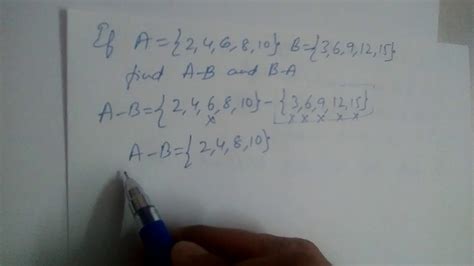 If A={2,4,6,8,10} B={3,6,9,12,15}
find A-B and B-A
A-B={2,4,6,8,10}-{3,6,9,12,15}
A-B={2,4,8,10}